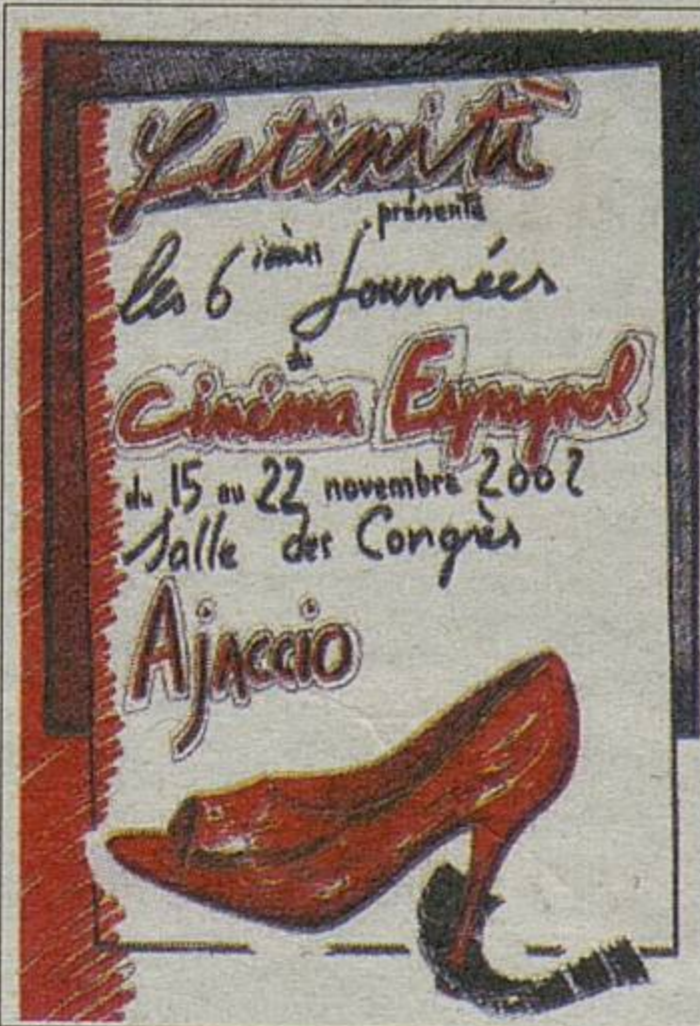 Latinità
présente
les 6 ièmes Journées
du
Cinéma Espagnol
du 15 au 22 novembre 2002
Salle des Congrès
Ajaccio